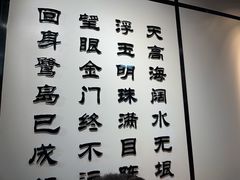 天高海阔水无垠
浮玉明珠满目
望眼金门终不
回身鹭岛已成